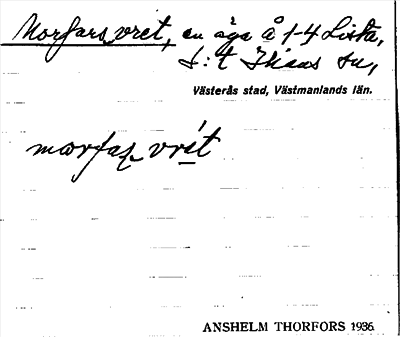 Morfars vret, en äga å 1-4 Lista,
S:t Ilians sn,
Västerås stad, Västmanlands län.
morfaʂ vrét
ANSHELM THORFORS 1936.